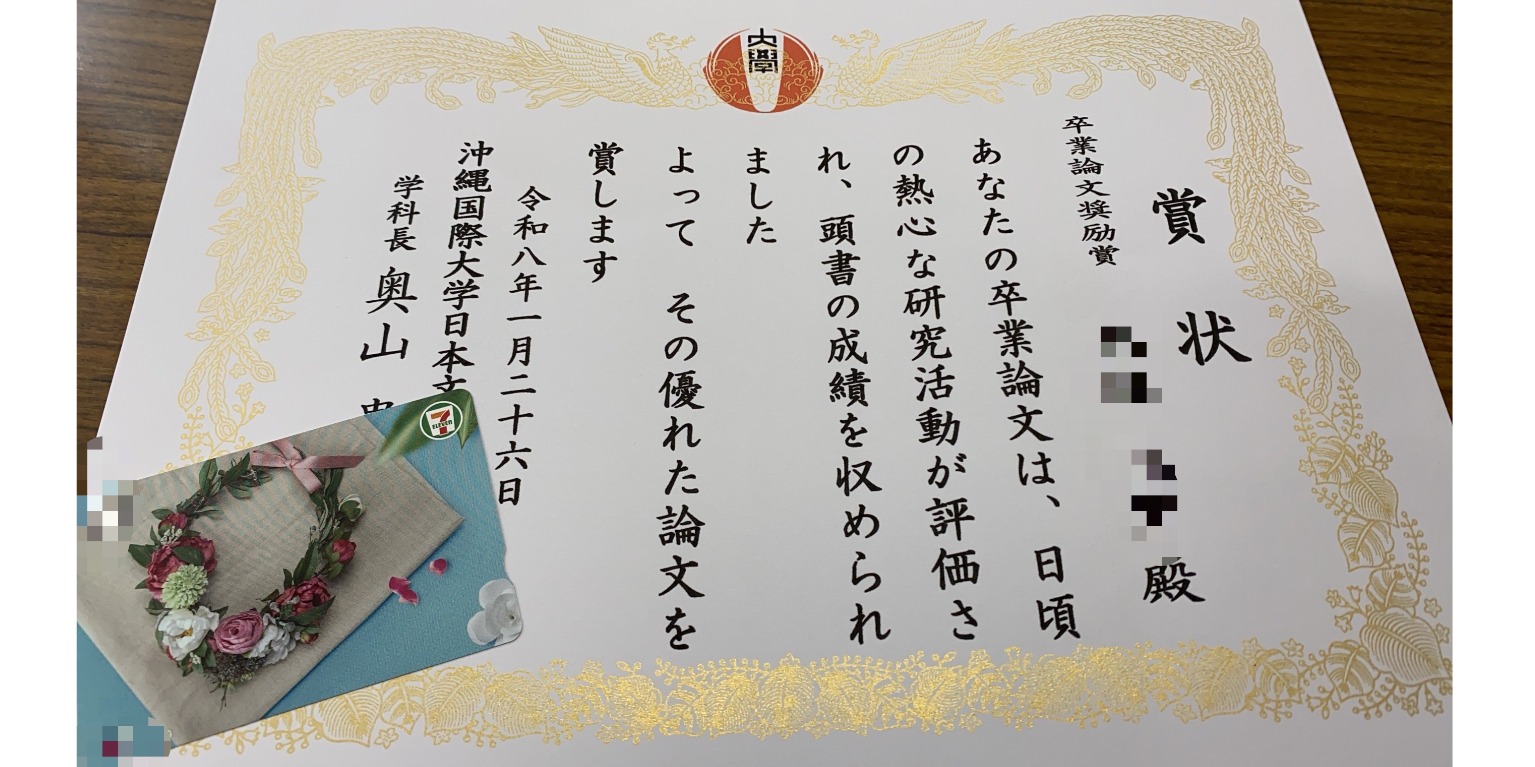 大學
賞状
卒業論文奨励賞
殿
あなたの卒業論文は、日頃
の熱心な研究活動が評価さ
れ、頭書の成績を収められ
ました
よって その優れた論文を
賞します
令和八年一月二十六日
沖縄国際大学日本文
学科長 奥山
7
ELEVEN